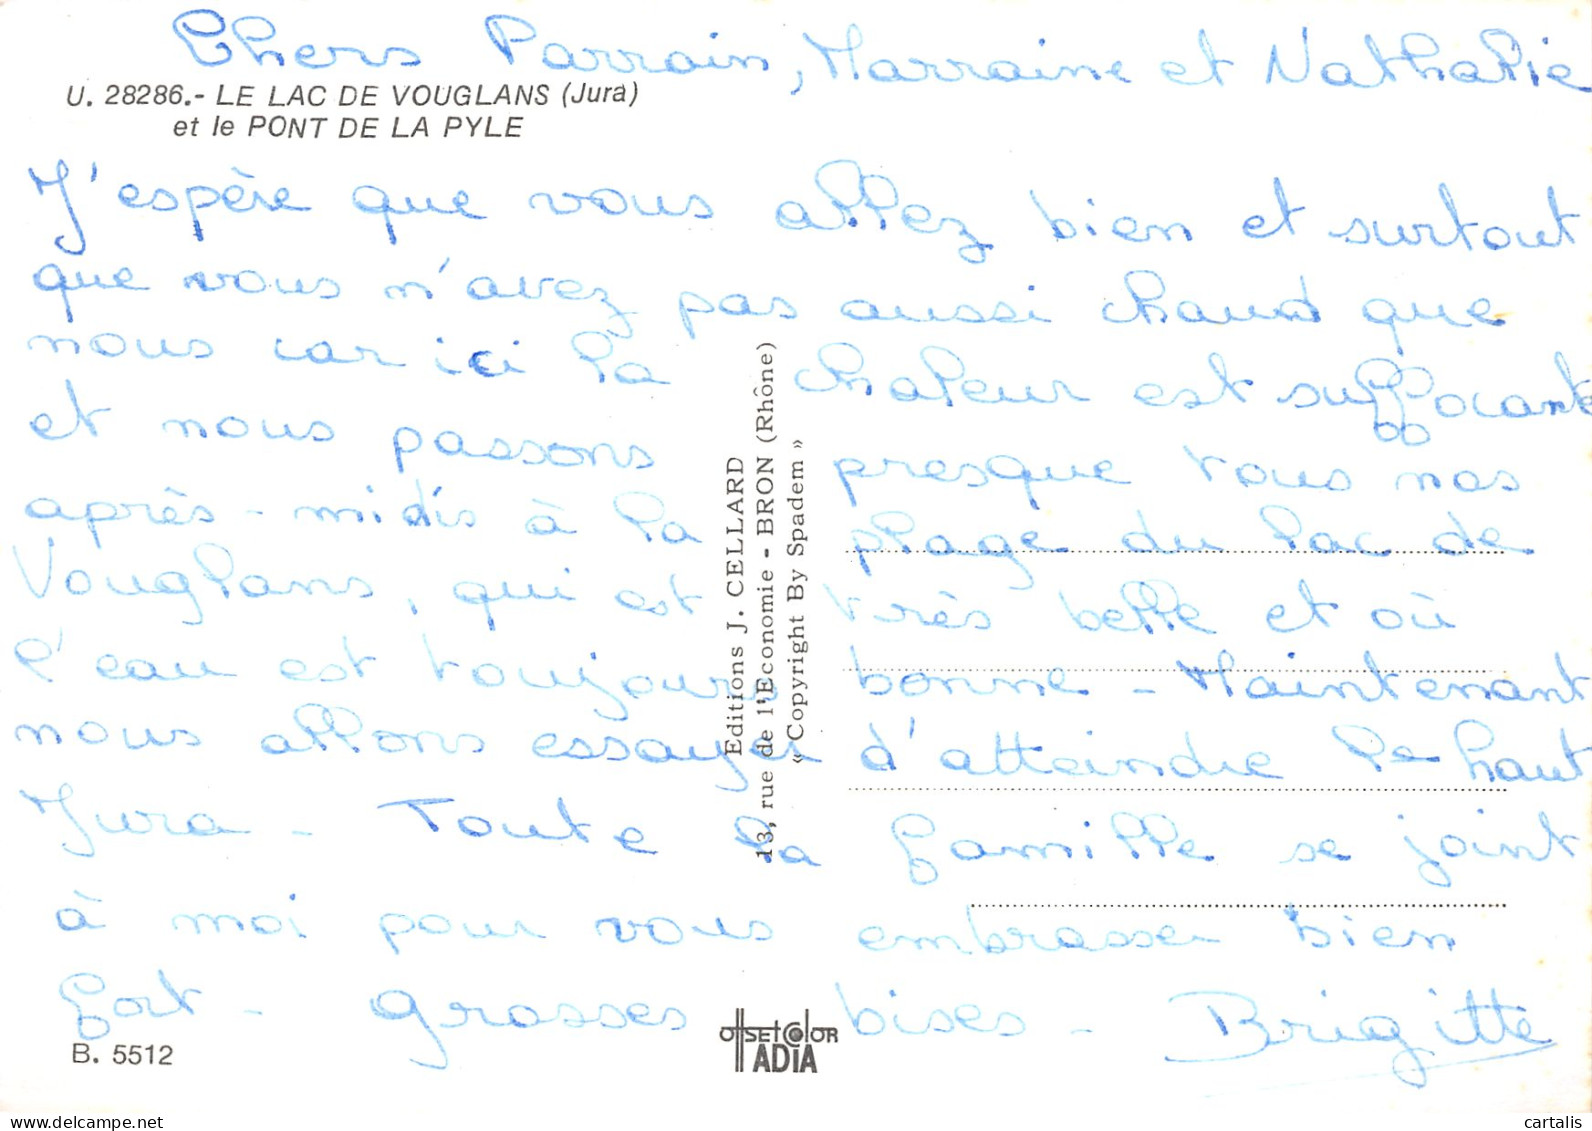 Chers Parrain, Marraine et Nathalie
U. 28286.- LE LAC DE VOUGLANS (Jura)
et le PONT DE LA PYLE
J'espère que vous allez bien et surtout
que vous n'avez pas aussi chaud que
nous car ici la chaleur est suffocante
et nous passons presque tous nos
après-midis à la plage du lac de
Vouglans, qui est très belle et où
l'eau est toujours bonne - Maintenant
nous allons essayer d'atteindre le haut
Jura - Toute la famille se joint
à moi pour vous embrasser bien
fort - grosses bises - Brigitte
Editions J. CELLARD
13, rue de l'Economie - BRON (Rhône)
« Copyright By Spadem »
B. 5512
OFFSET COLOR
ADIA
cartalis